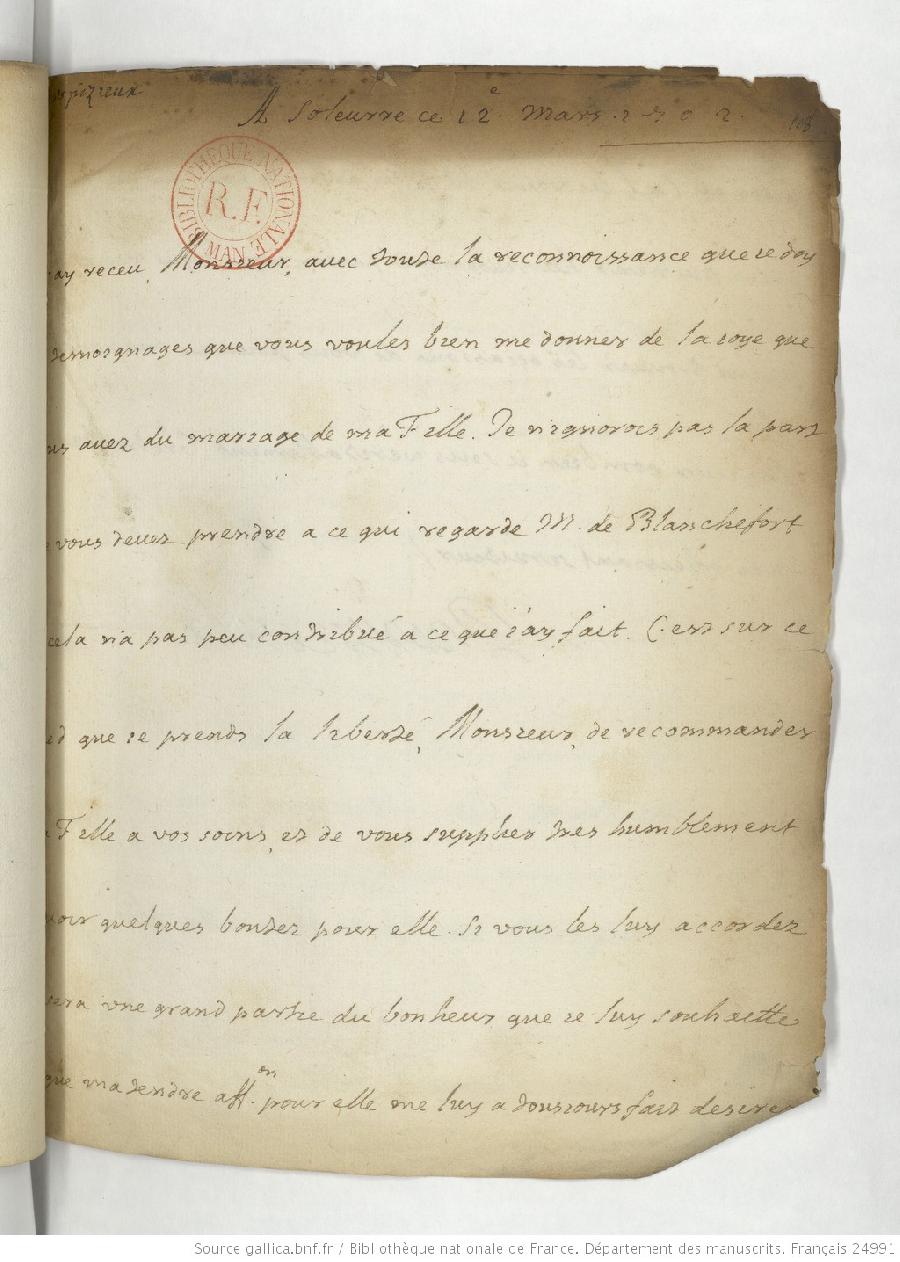 puizieux
A Soleurre ce 12e Mars 1702. 108
BIBLIOTHEQUE NATIONALE MAN
R.F.
ay receu, Monsieur, avec toute la reconnoissance que ie doy
temoignages que vous voules bien me donner de la ioye que
us avez du mariage de ma Fille. Je n'ignorois pas la part
vous devez prendre a ce qui regarde M. de Blanchefort
cela n'a pas peu contribué a ce que i'ay fait. C'est sur ce
ed que ie prends la liberté, Monsieur, de recommander
Fille a vos soins, et de vous supplier tres humblement
voir quelques bontez pour elle. Si vous les luy accordez
sera une grand partie du bonheur que ie luy souhaitte
que ma tendre affon pour elle me luy a tousiours fait desirer
Source gallica.bnf.fr / Bibliothèque nationale de France. Département des manuscrits. Français 24991